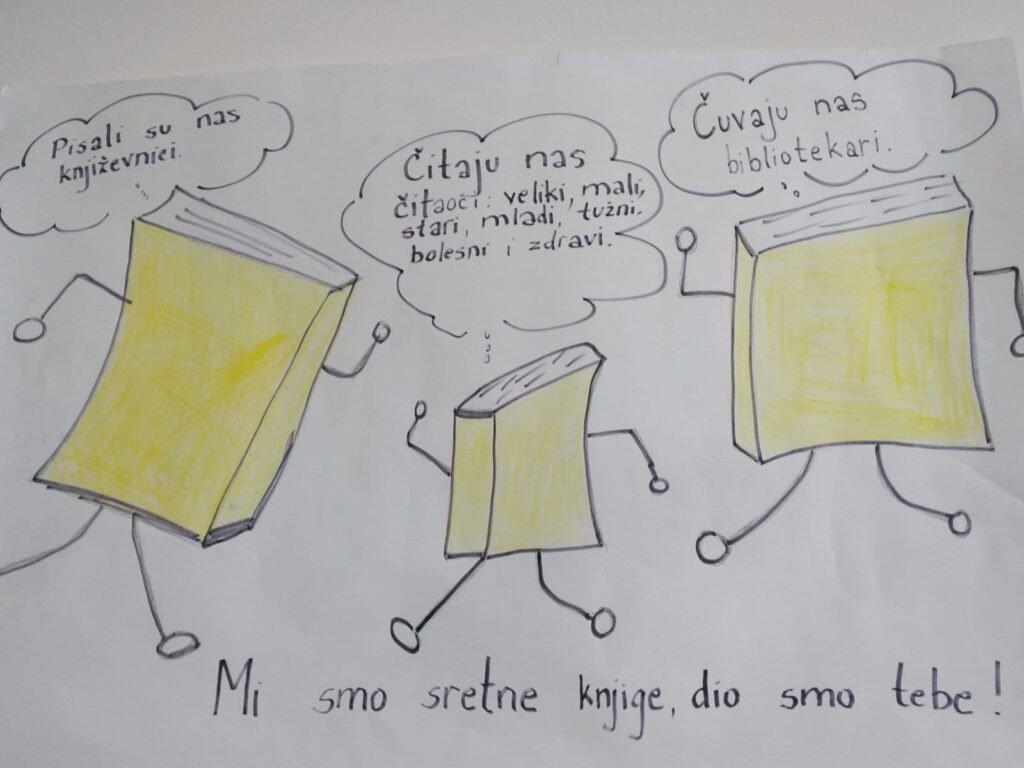 Pisali su nas
književnici.
Čitaju nas
čitaoci: veliki, mali,
stari, mladi, tužni.
bolesni i zdravi.
Čuvaju nas
bibliotekari.
Mi smo sretne knjige, dio smo tebe!